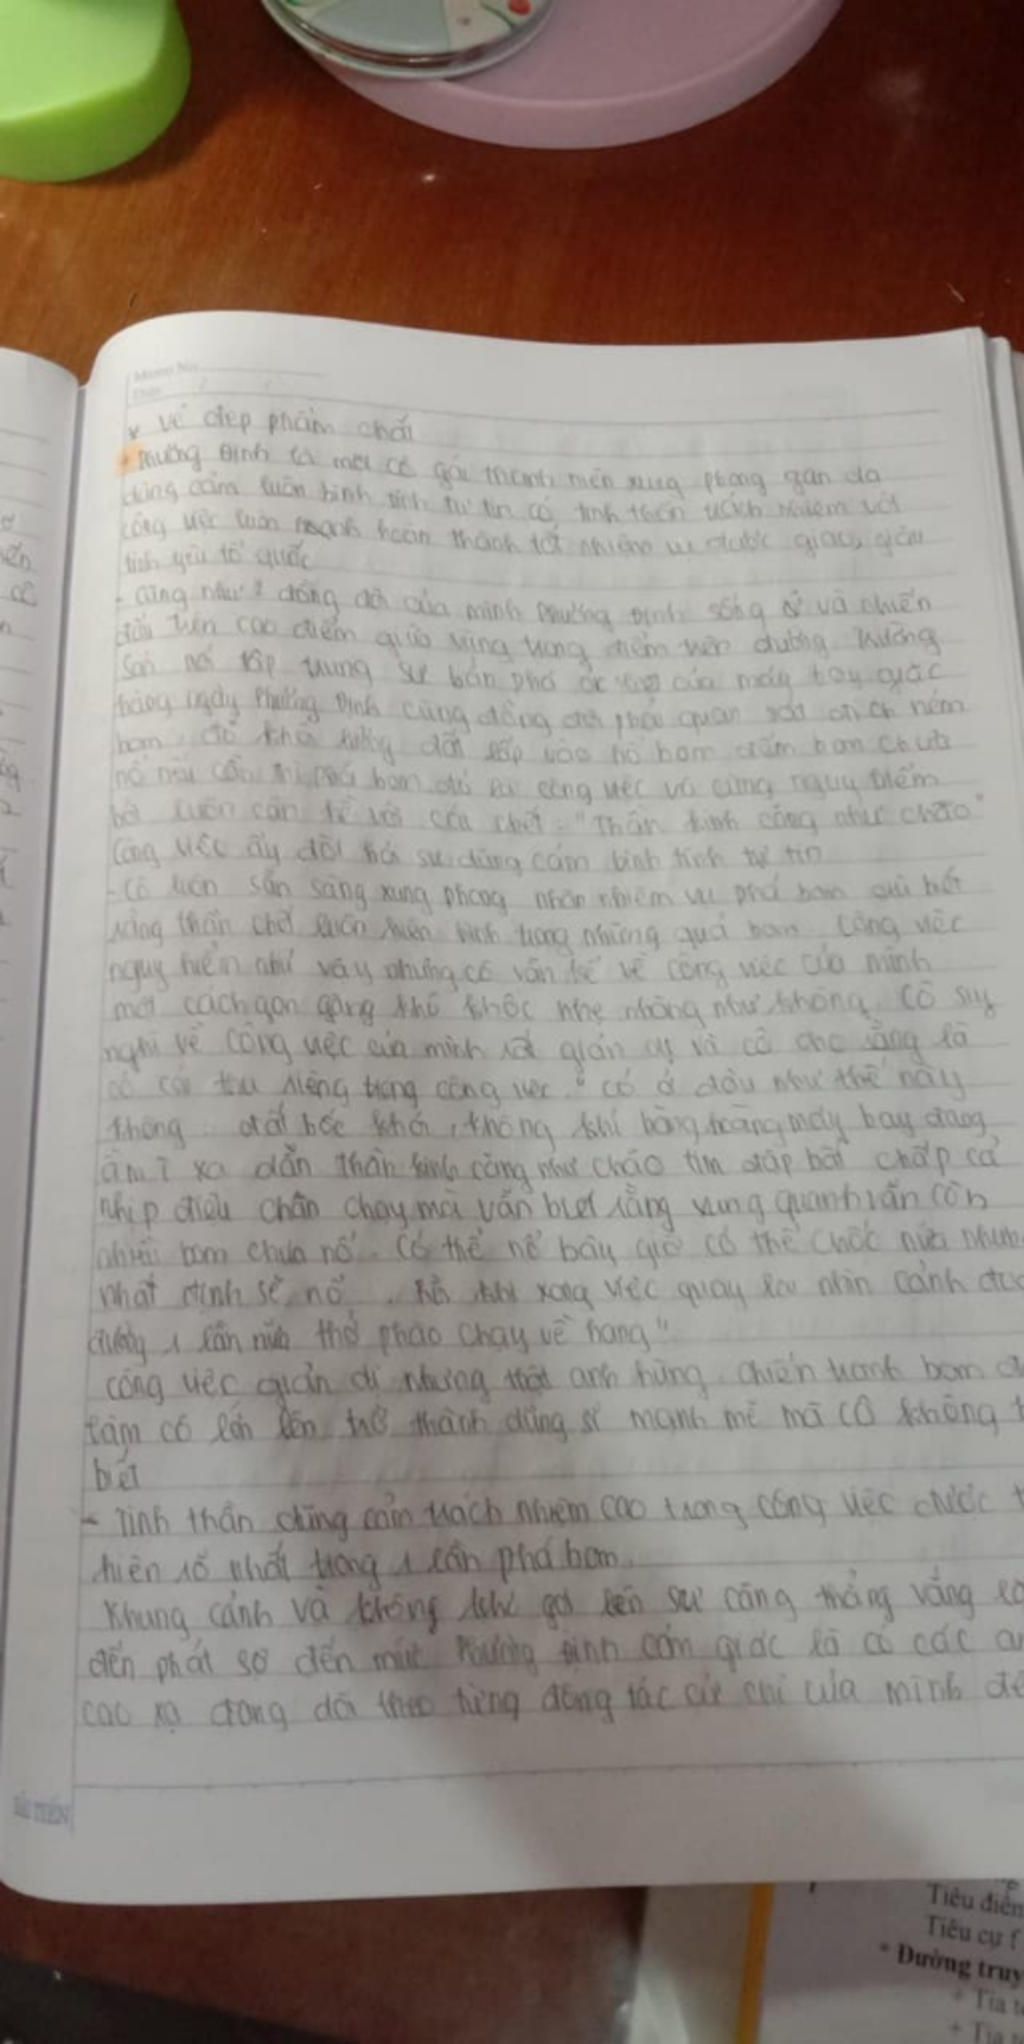 * Vẻ đẹp phẩm chất
+ Phương Định là một cô gái thanh niên xung phong gan dạ
dũng cảm luôn bình tĩnh tự tin có tinh thần trách nhiệm với
công việc luôn hoàn thành tốt nhiệm vụ được giao, giàu
tình yêu tổ quốc
- Cũng như 2 đồng đội của mình Phương Định sống ở và chiến
đấu trên cao điểm giữa vùng trọng điểm trên đường Trường
Sơn nơi tập trung sự bắn phá ác liệt của máy bay giặc
hàng ngày Phương Định cùng đồng đội phải quan sát địch ném
bom, đo khối lượng đất lấp vào hố bom đếm bom chưa
nổ nếu cần thì phá bom đó là công việc vô cùng nguy hiểm
bởi luôn cận kề với cái chết. "Thần kinh căng như chão"
Công việc ấy đòi hỏi sự dũng cảm bình tĩnh tự tin
- Cô luôn sẵn sàng xung phong nhận nhiệm vụ phá bom dù biết
rằng thần chết luôn hiện hình trong những quả bom. Công việc
nguy hiểm như vậy nhưng cô vẫn kể về công việc của mình
một cách gọn gàng khô khốc nhẹ nhõng như không. Cô suy
nghĩ về công việc của mình rất giản dị và cô cho rằng là
có cái thú riêng trong công việc. "có ở đâu như thế này
không đất bốc khói, không khí bàng hoàng máy bay đang
ầm ì xa dần thần kinh căng như chão tim đập bất chấp cả
nhịp điệu chân chạy mà vẫn biết rằng xung quanh vẫn còn
nhiều bom chưa nổ. Có thể nổ bây giờ có thể chốc nữa
nhất định sẽ nổ. Rồi khi xong việc quay lại nhìn cảnh
đường 1 lần nữa thở phào chạy về hang"
công việc giản dị nhưng thật anh hùng. chiến tranh bom
làm cô lớn lên trở thành dũng sĩ mạnh mẽ mà cô không
biết
- Tinh thần dũng cảm trách nhiệm cao trong công việc được
hiện rõ nhất trong 1 lần phá bom.
Khung cảnh và không khí gợi lên sự căng thẳng vắng
đến phát sợ đến mức Phương Định cảm giác là có các
cao xạ đang dõi theo từng động tác cử chỉ của mình
Tiêu điểm
Tiêu cự f
* Đường truy
+ Tia
+ Tia